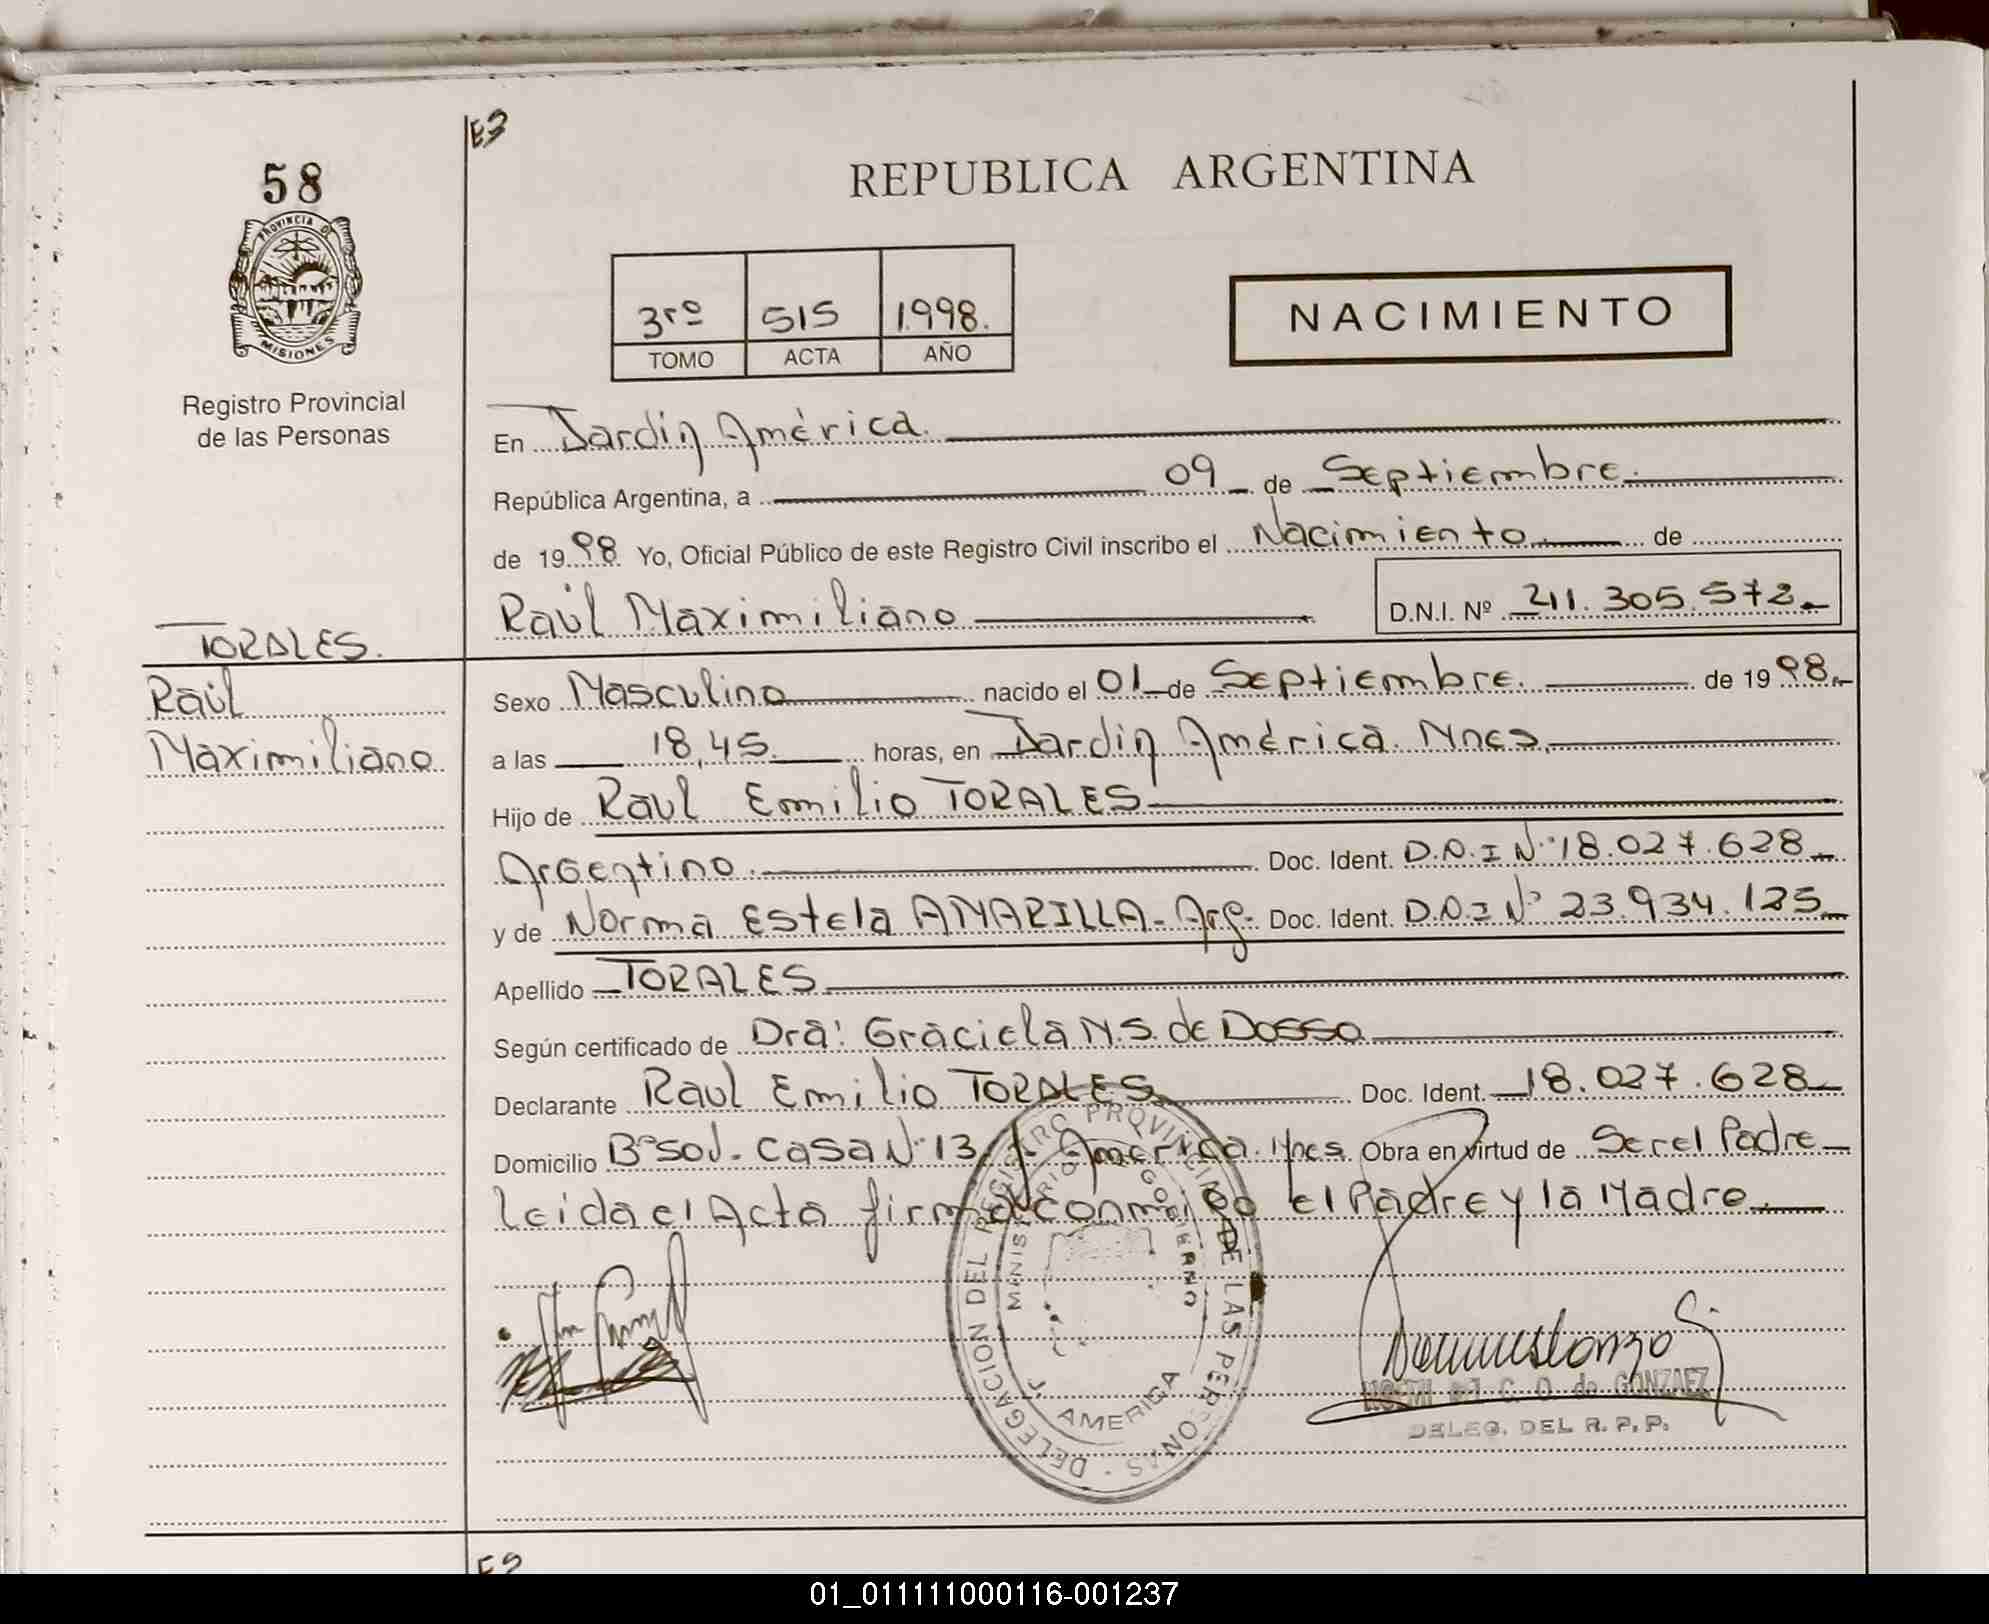 E3
58
PROVINCIA DE
MISIONES
Registro Provincial
de las Personas
REPUBLICA ARGENTINA
3ro 515 1.998.
TOMO ACTA AÑO
NACIMIENTO
En Jardin América.
República Argentina, a 09 de Septiembre.
de 19 98 Yo, Oficial Público de este Registro Civil inscribo el Nacimiento de
Raúl Maximiliano D.N.I. Nº 41.305.572
TORALES.
Raúl
Maximiliano
Sexo Masculino nacido el 01 de Septiembre. de 19 98.
a las 18,45. horas, en Jardin América. Mnes.
Hijo de Raul Emilio TORALES
Argentino. Doc. Ident. D.N.I Nº 18.027.628
y de Norma Estela AMARILLA - Arg. Doc. Ident. D.N.I Nº 23.934.125
Apellido TORALES
Según certificado de Dra: Graciela N.S. de Dosso
Declarante Raul Emilio TORALES Doc. Ident. 18.027.628
Domicilio Bº Sol. Casa Nº 13 J. América. Mnes. Obra en virtud de Ser el Padre
leida el Acta firma conmigo el Padre y la Madre.
DELEGACION DEL REGISTRO PROVINCIAL DE LAS PERSONAS
MINISTERIO GOBIERNO
AMERICA
C. O. de GONZAEZ
DELEG. DEL R. P. P.
01_011111000116-001237